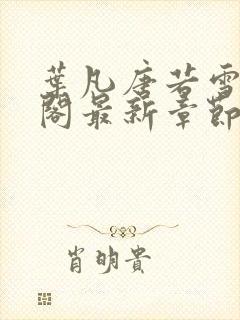 葉凡唐若雪
閣最新章節
肖明貴